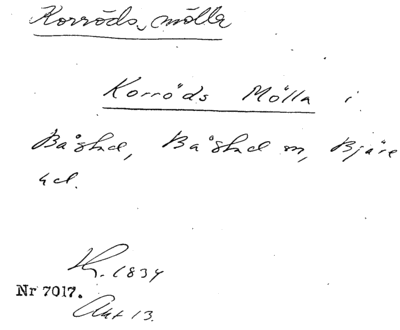 Korröds mölla
Korröds Mölla i
Båstad, Båstad sn, Bjäre
hd.
Kr. 1834
Nr 7017.
Akt 13.